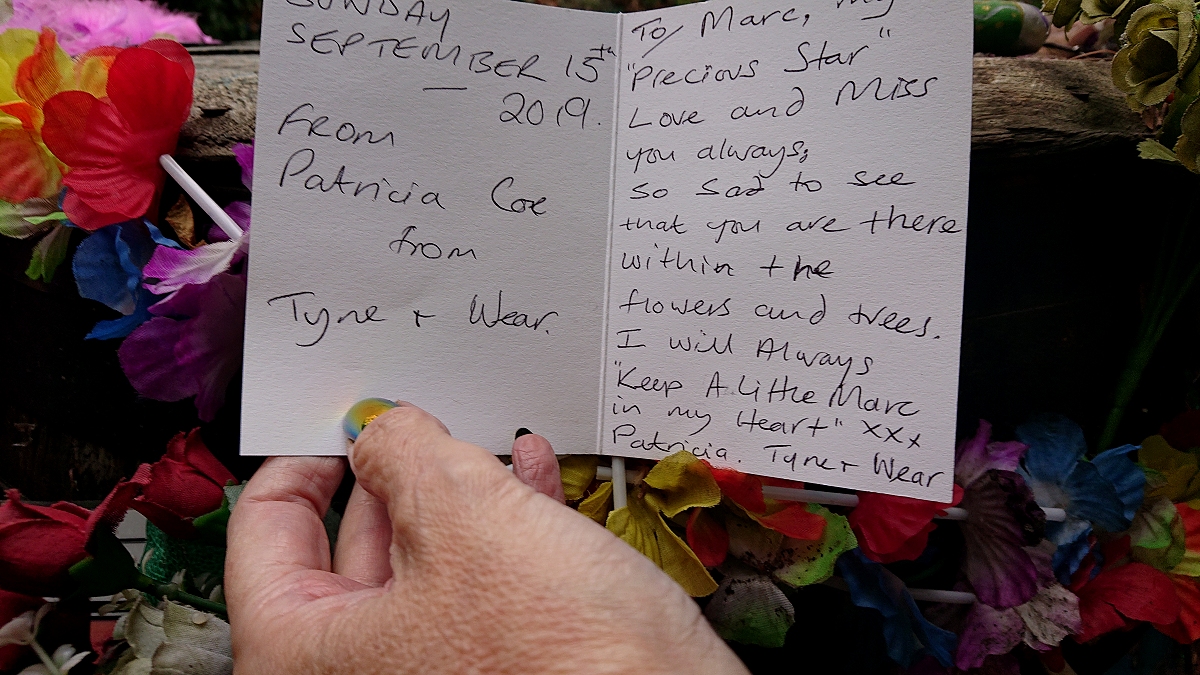 SUNDAY
SEPTEMBER 15th
2019.
From
Patricia Coe
from
Tyne + Wear.
To/ Marc, my
"Precious Star"
Love and Miss
you always;
so sad to see
that you are there
within the
flowers and trees.
I will Always
"Keep A Little Marc
in my Heart" xxx
Patricia. Tyne + Wear